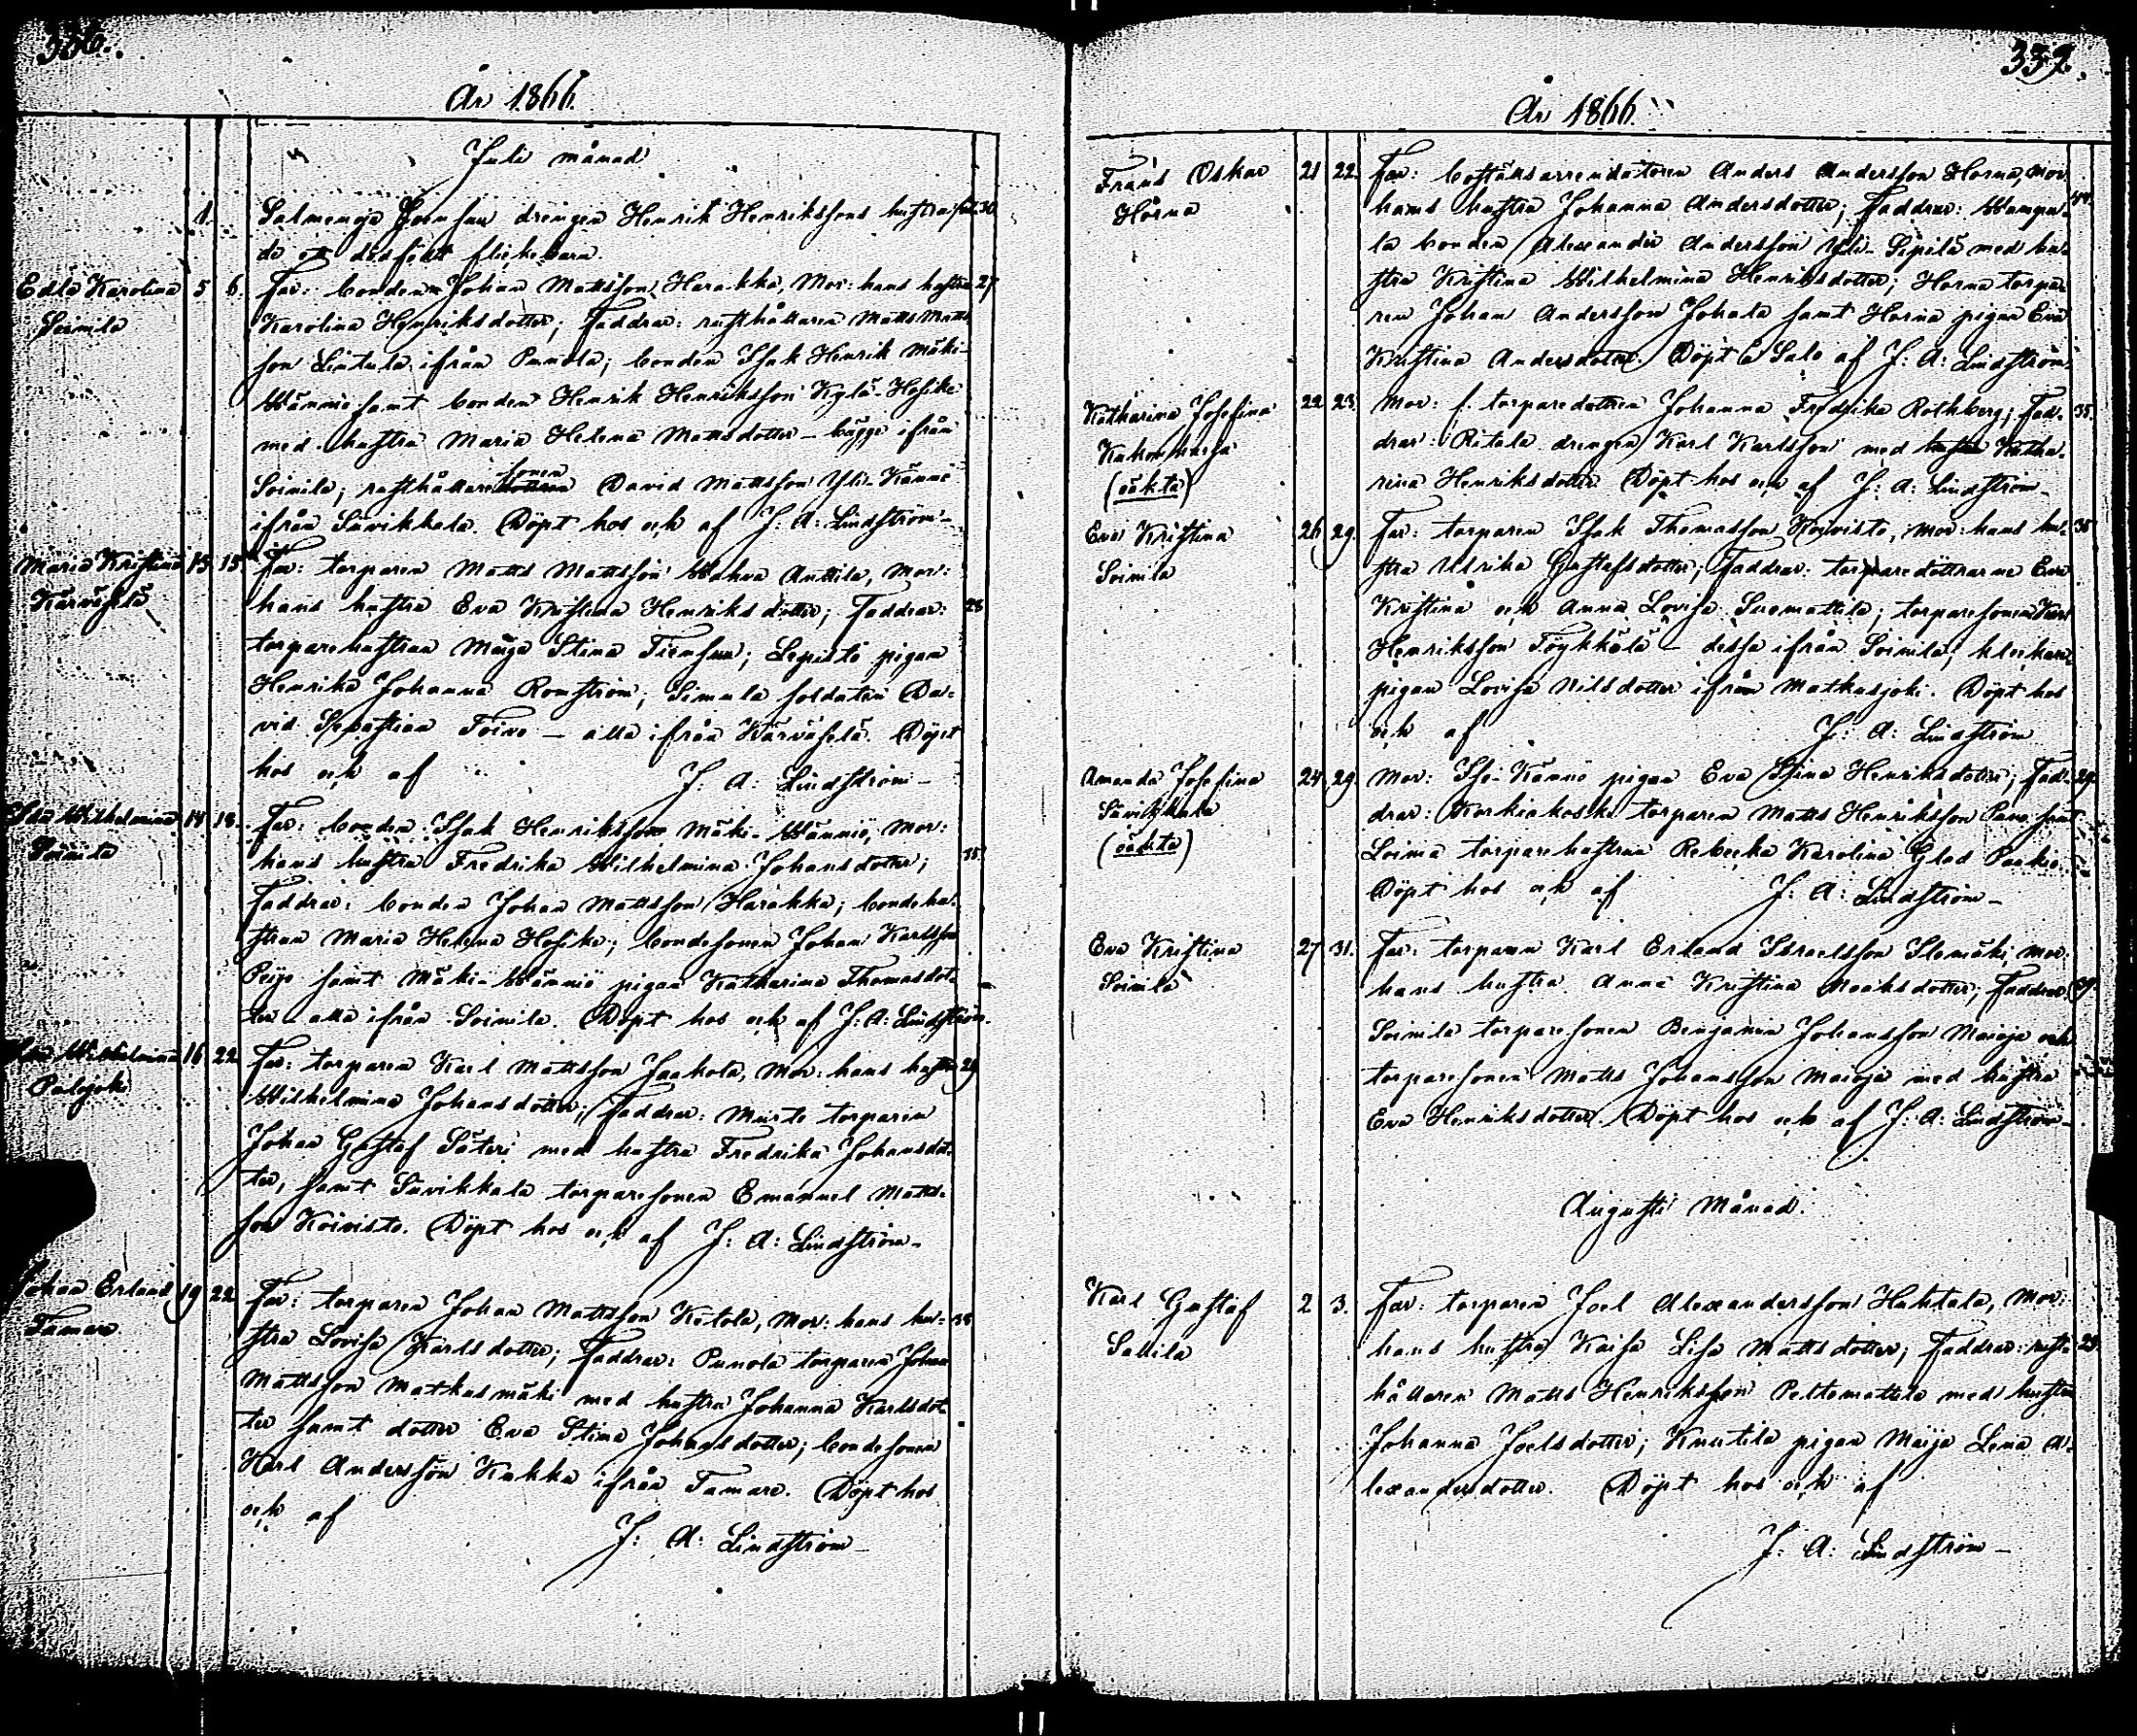 336.
År 1866.
Juli månad
1. Salmenoja drengen Henrik Henrikssons hustru föd- 30
de ett dödfödt flickebarn.
Edla Karolina 5 6. Far: bonden Johan Mattsson Harakka, Mor: hans hustru 27
Soinila Karolina Henriksdotter; Faddrar: rusthållaren Matts Matts
son Lintula ifrån Punola; bonden Isak Henrik Mäki-
Männiö samt bonden Henrik Henriksson Kylä-Hosike
med hustru Maria Helena Mattsdotter – bägge ifrån
Soinila; rusthållaresonen David Mattsson Yli-Kännö
ifrån Suvikkala. Döpt hos och af J: A: Lindström –
Maria Kristina 15 15 Far: torparen Matts Mattsson Anttila, Mor:
Kärväselä hans hustru Eva Kristina Henriksdotter; Faddrar: 28
torparehustrun Maija Stina Tiensuu; Lepistö pigan
Henrika Johanna Romström; Simula soldaten Da-
vid Sebastian Toivo – alla ifrån Kärväselä. Döpt
hos och af J: A: Lindström –
Ida Wilhelmina 14 18. Far: bonden Isak Henriksson Mäki-Männiö, Mor:
Soinila hans hustru Fredrika Wilhelmina Johansdotter; 35
Faddrar: bonden Johan Mattsson Harakka; bondehu-
strun Maria Helena Hosike; bondesonen Johan Karlsson
Peijo samt Mäki-Männiö pigan Katharina Thomasdot-
ter – alla ifrån Soinila. Döpt hos och af J: A: Lindström.
Wilhelmina 16 22 Far: torparen Karl Mattsson Jaakola, Mor: hans hustru 29
Palojoki Wilhelmina Johansdotter; Faddrar: Murto torparen
Johan Gustaf Säteri med hustru Fredrika Johansdot-
ter, samt Suvikkala torparesonen Emanuel Matts-
son Koivisto. Döpt hos och af J: A: Lindström –
Johan Erland 19 22 Far: torparen Johan Mattsson Ketola, Mor: hans hu- 38
Tamare stru Lovisa Karlsdotter; Faddrar: Punola torparen Johan
Mattsson Matkusmäki med hustru Johanna Karlsdot-
ter samt dotter Eva Stina Johansdotter; bondesonen
Karl Andersson Kukka ifrån Tamare. Döpt hos
och af J: A: Lindström –
337.
År 1866.
Frans Oskar 21 22. Far: boställsarrendatoren Anders Andersson Horna, Mor
Horna hans hustru Johanna Andersdotter; Faddrar: Wampu- 44.
la bonden Alexander Andersson Yli-Sipilä med hu-
stru Kristina Wilhelmina Henriksdotter; Horna torpa-
ren Johan Andersson Johala samt Horna pigan Eva
Kristina Andersdotter. Döpt å Salo af J: A: Lindström.
Katharina Josefina 22 23. Mor: f. torparedottren Johanna Fredrika Rothberg; Fad- 35.
drar: Ritala drengen Karl Karlsson med hustru Katha-
(oäkta) rina Henriksdotter Döpt hos och af J: A: Lindström –
Eva Kristina 26 29. Far: torparen Isak Thomasson Koivisto, Mor: hans hu- 35
Soinila stru Ulrika Gustafsdotter; Faddrar: torparedöttrarne Eva
Kristina och Anna Lovisa Suomattila; torparesonen Karl
Henriksson Töykkälä – dessa ifrån Soinila;
pigan Lovisa Nilsdotter ifrån Matkusjoki. Döpt hos
och af J: A: Lindström
Amanda Josefina 24 29. Mor: Iso-Kännö pigan Eva Stina Henriksdotter; Fad- 29.
Suvikkala drar: Korkiakoski torparen Matts Henriksson samt
(oäkta) Loima torparehustrun Rebecka Karolina Glad
Döpt hos och af J: A: Lindström –
Eva Kristina 27 31. Far: torparen Karl Erland Israelsson Ilomäki, Mor:
Soinila hans hustru Anna Kristina Isaksdotter; Faddrar 29
Soinila torparesonen Benjamin Johansson Maioja och
torparesonen Matts Johansson Maioja med hustru
Eva Henriksdotter. Döpt hos och af J: A: Lindström –
Augusti Månad.
Karl Gustaf 2 3. Far: torparen Joel Alexandersson Huhtala, Mor:
Sallila hans hustru Kaisa Lisa Mattsdotter; Faddrar: rust- 29.
hållaren Matts Henriksson Peltomattila med hustru
Johanna Joelsdotter; Knutila pigan Maija Lena A-
lexandersdotter. Döpt hos och af
J: A: Lindström –